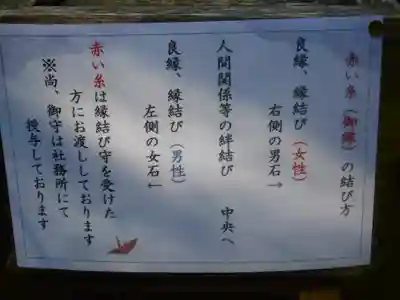 赤い糸（御縁）の結び方
良縁、縁結び（女性）
右側の男石→
人間関係等の絆結び　中央へ
良縁、縁結び（男性）
左側の女石←
赤い糸は縁結び守を受けた
方にお渡ししております
※尚、御守は社務所にて
授与しております